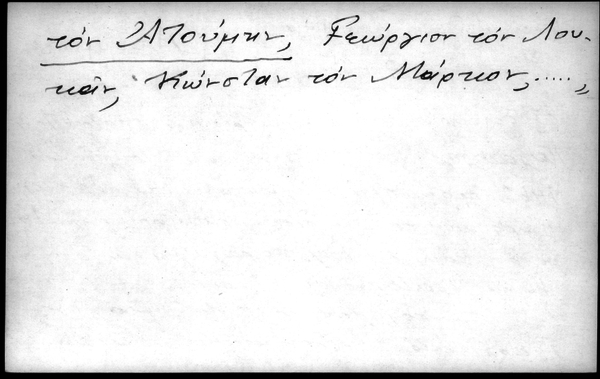 τόν Ἀτούμην, Γεώργιον τόν Λου-
κᾶν, Κώνσταν τόν Μάρκον, .....,,